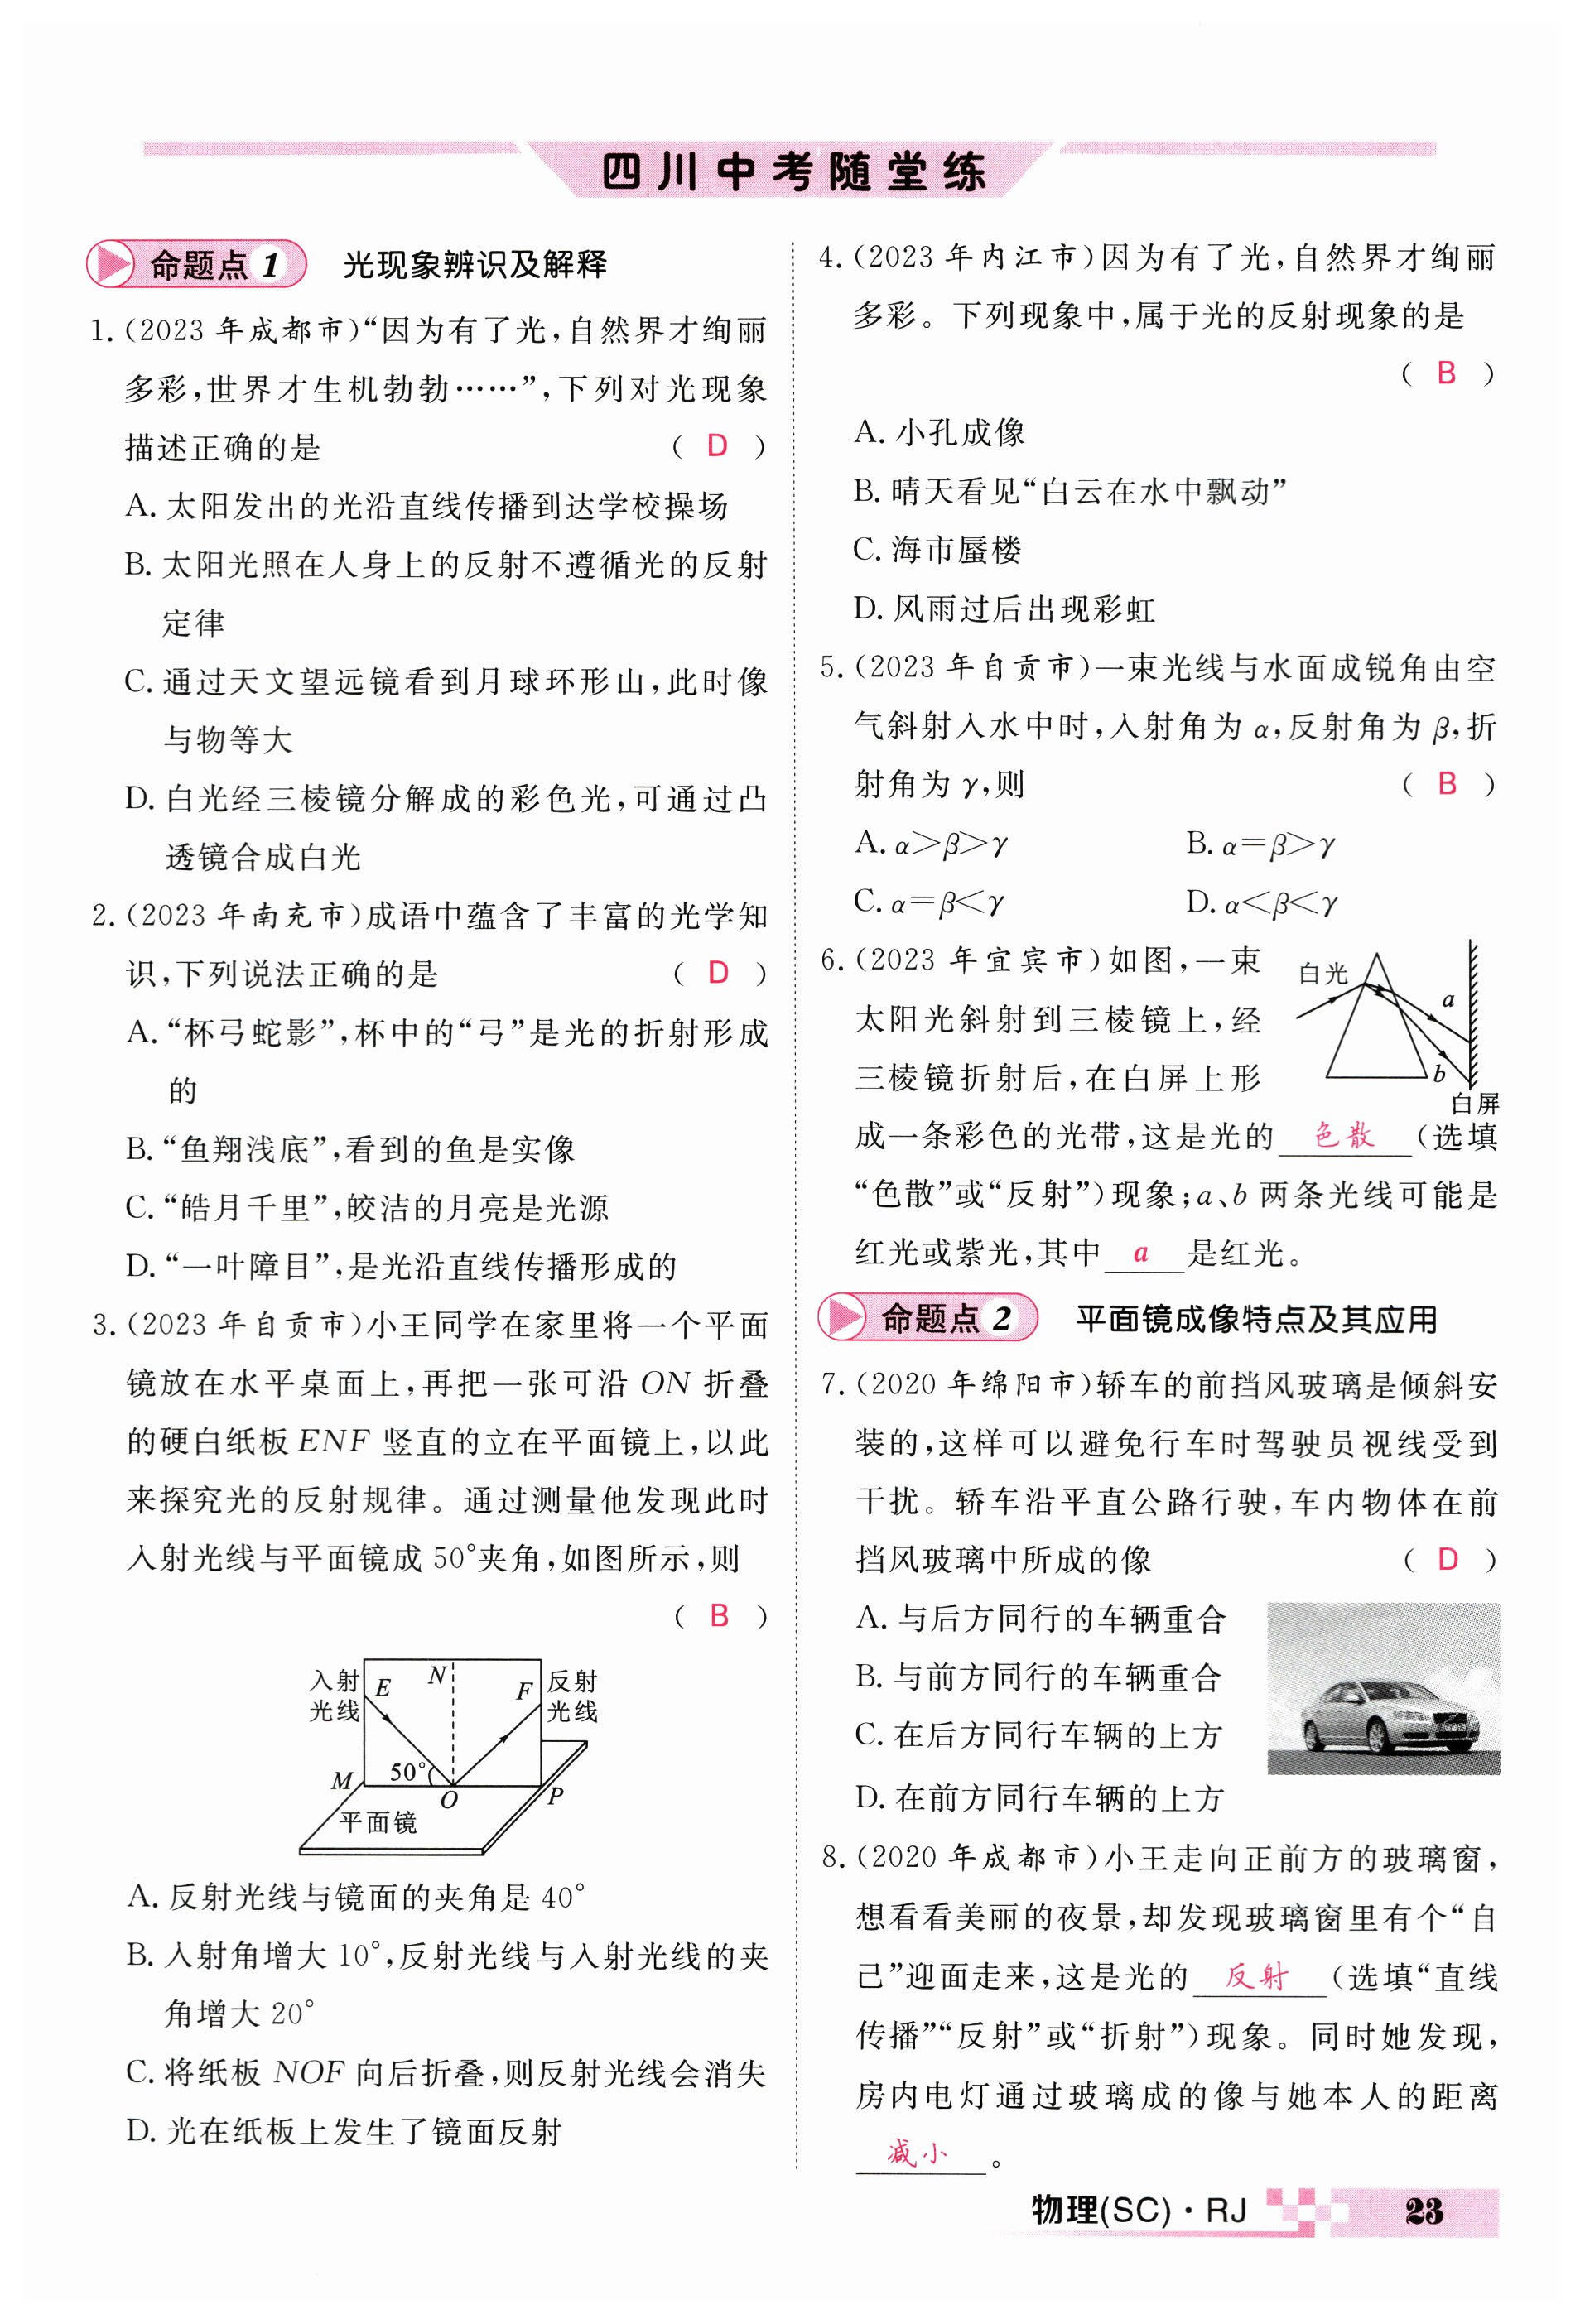 四川中考随堂练
命题点 1 光现象辨识及解释
1.(2023 年成都市)“因为有了光,自然界才绚丽
多彩,世界才生机勃勃……”,下列对光现象
描述正确的是 ( D )
A. 太阳发出的光沿直线传播到达学校操场
B. 太阳光照在人身上的反射不遵循光的反射
定律
C. 通过天文望远镜看到月球环形山,此时像
与物等大
D. 白光经三棱镜分解成的彩色光,可通过凸
透镜合成白光
2.(2023 年南充市)成语中蕴含了丰富的光学知
识,下列说法正确的是 ( D )
A. “杯弓蛇影”,杯中的“弓”是光的折射形成
的
B. “鱼翔浅底”,看到的鱼是实像
C. “皓月千里”,皎洁的月亮是光源
D. “一叶障目”,是光沿直线传播形成的
3.(2023 年自贡市)小王同学在家里将一个平面
镜放在水平桌面上,再把一张可沿 ON 折叠
的硬白纸板 ENF 竖直的立在平面镜上,以此
来探究光的反射规律。通过测量他发现此时
入射光线与平面镜成 50°夹角,如图所示,则
( B )
入射 E N F 反射
光线 光线
M 50° O P
平面镜
A. 反射光线与镜面的夹角是 40°
B. 入射角增大 10°,反射光线与入射光线的夹
角增大 20°
C. 将纸板 NOF 向后折叠,则反射光线会消失
D. 光在纸板上发生了镜面反射
4.(2023 年内江市)因为有了光,自然界才绚丽
多彩。下列现象中,属于光的反射现象的是
( B )
A. 小孔成像
B. 晴天看见“白云在水中飘动”
C. 海市蜃楼
D. 风雨过后出现彩虹
5.(2023 年自贡市)一束光线与水面成锐角由空
气斜射入水中时,入射角为 α,反射角为 β,折
射角为 γ,则 ( B )
A. α>β>γ B. α=β>γ
C. α=β<γ D. α<β<γ
6.(2023 年宜宾市)如图,一束
太阳光斜射到三棱镜上,经
三棱镜折射后,在白屏上形
白光 a
b
白屏
成一条彩色的光带,这是光的 色散 (选填
“色散”或“反射”)现象;a、b 两条光线可能是
红光或紫光,其中 a 是红光。
命题点 2 平面镜成像特点及其应用
7.(2020 年绵阳市)轿车的前挡风玻璃是倾斜安
装的,这样可以避免行车时驾驶员视线受到
干扰。轿车沿平直公路行驶,车内物体在前
挡风玻璃中所成的像 ( D )
A. 与后方同行的车辆重合
B. 与前方同行的车辆重合
C. 在后方同行车辆的上方
D. 在前方同行车辆的上方
8.(2020 年成都市)小王走向正前方的玻璃窗,
想看看美丽的夜景,却发现玻璃窗里有个“自
己”迎面走来,这是光的 反射 (选填“直线
传播”“反射”或“折射”)现象。同时她发现,
房内电灯通过玻璃成的像与她本人的距离
减小 。
物理(SC)·RJ 23